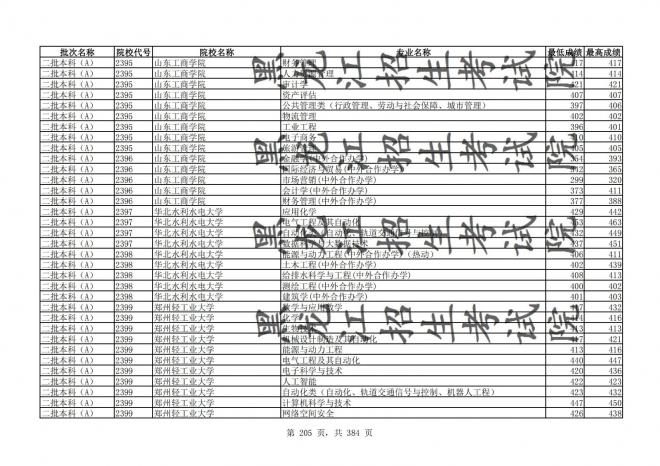 批次名称 院校代号 院校名称 专业名称 最低成绩 最高成绩
二批本科（A） 2395 山东工商学院 财务管理 417 417
二批本科（A） 2395 山东工商学院 人力资源管理 414 414
二批本科（A） 2395 山东工商学院 审计学 421 421
二批本科（A） 2395 山东工商学院 资产评估 407 407
二批本科（A） 2395 山东工商学院 公共管理类（行政管理、劳动与社会保障、城市管理） 397 406
二批本科（A） 2395 山东工商学院 物流管理 402 402
二批本科（A） 2395 山东工商学院 工业工程 396 401
二批本科（A） 2395 山东工商学院 电子商务 410
二批本科（A） 2395 山东工商学院 405
二批本科（A） 2396 山东工商学院 金融学(中外合作办学) 354 393
二批本科（A） 2396 山东工商学院 国际经济与贸易(中外合作办学) 342 365
二批本科（A） 2396 山东工商学院 市场营销(中外合作办学) 299 320
二批本科（A） 2396 山东工商学院 会计学(中外合作办学) 373 411
二批本科（A） 2396 山东工商学院 财务管理(中外合作办学) 377 388
二批本科（A） 2397 华北水利水电大学 应用化学 429 442
二批本科（A） 2397 华北水利水电大学 电气工程及其自动化 453 463
二批本科（A） 2397 华北水利水电大学 自动化类（自动化、轨道交通信号与控制） 432 449
二批本科（A） 2397 华北水利水电大学 数据科学与大数据技术 437 451
二批本科（A） 2398 华北水利水电大学 能源与动力工程(中外合作办学)（热动） 406 411
二批本科（A） 2398 华北水利水电大学 土木工程(中外合作办学) 402 439
二批本科（A） 2398 华北水利水电大学 给排水科学与工程(中外合作办学) 408 413
二批本科（A） 2398 华北水利水电大学 测绘工程(中外合作办学) 400 402
二批本科（A） 2398 华北水利水电大学 建筑学(中外合作办学) 401 403
二批本科（A） 2399 郑州轻工业大学 数学与应用数学 432
二批本科（A） 2399 郑州轻工业大学 416
二批本科（A） 2399 郑州轻工业大学 413
二批本科（A） 2399 郑州轻工业大学 机械设计制造及其自动化 421
二批本科（A） 2399 郑州轻工业大学 能源与动力工程 413 416
二批本科（A） 2399 郑州轻工业大学 电气工程及其自动化 440 447
二批本科（A） 2399 郑州轻工业大学 电子科学与技术 420 436
二批本科（A） 2399 郑州轻工业大学 人工智能 422 423
二批本科（A） 2399 郑州轻工业大学 自动化类（自动化、轨道交通信号与控制、机器人工程） 423 432
二批本科（A） 2399 郑州轻工业大学 计算机科学与技术 447 450
二批本科（A） 2399 郑州轻工业大学 网络空间安全 426 438
黑龙江招生考试院
黑龙江招生考试院
第 205 页，共 384 页